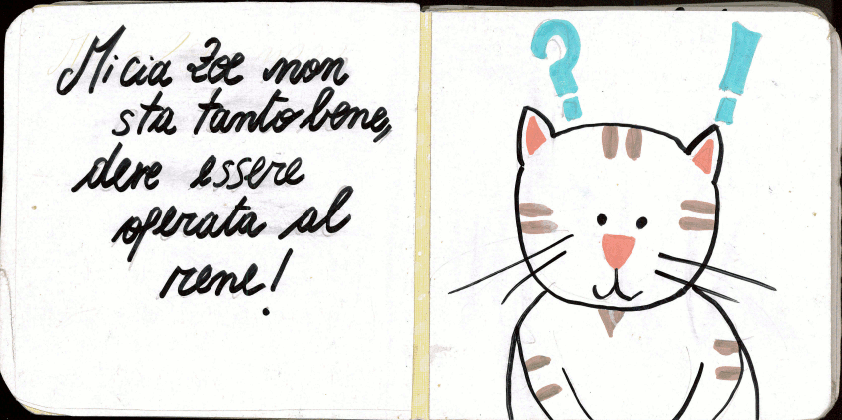 Micia Zoe non
sta tanto bene,
deve essere
operata al
rene!
? !